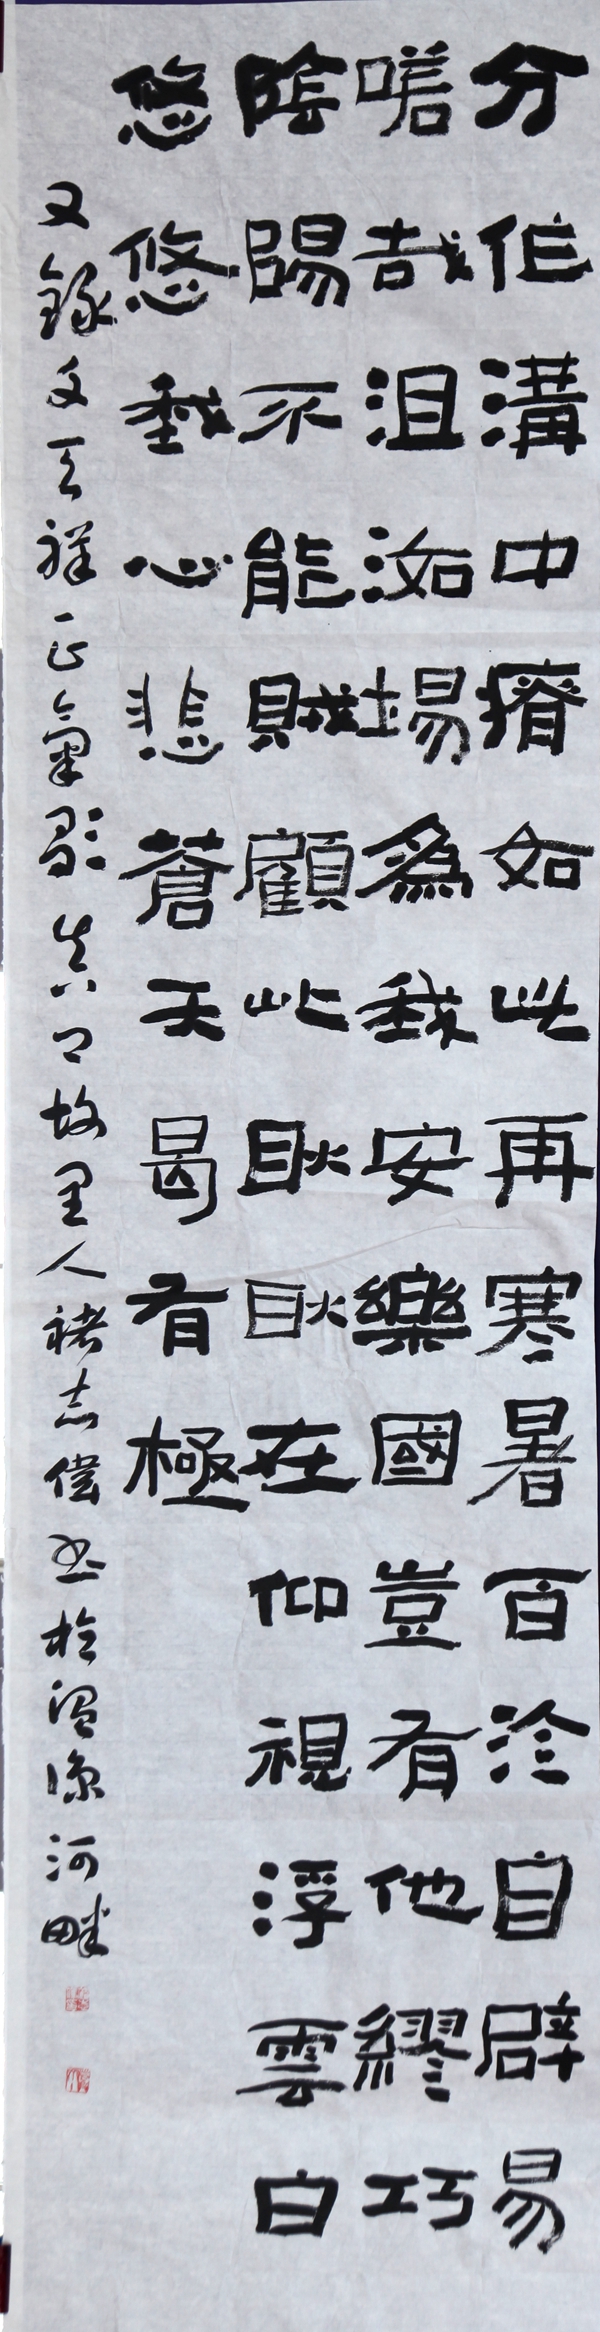 分作溝中瘠如此再寒暑百沴自辟易
嗟哉沮洳場為我安樂國豈有他繆巧
陰陽不能賊顧此耿耿在仰視浮雲白
悠悠我心悲蒼天曷有極
又錄文天祥正氣歌 故里人褚志偉書於溫涼河畔